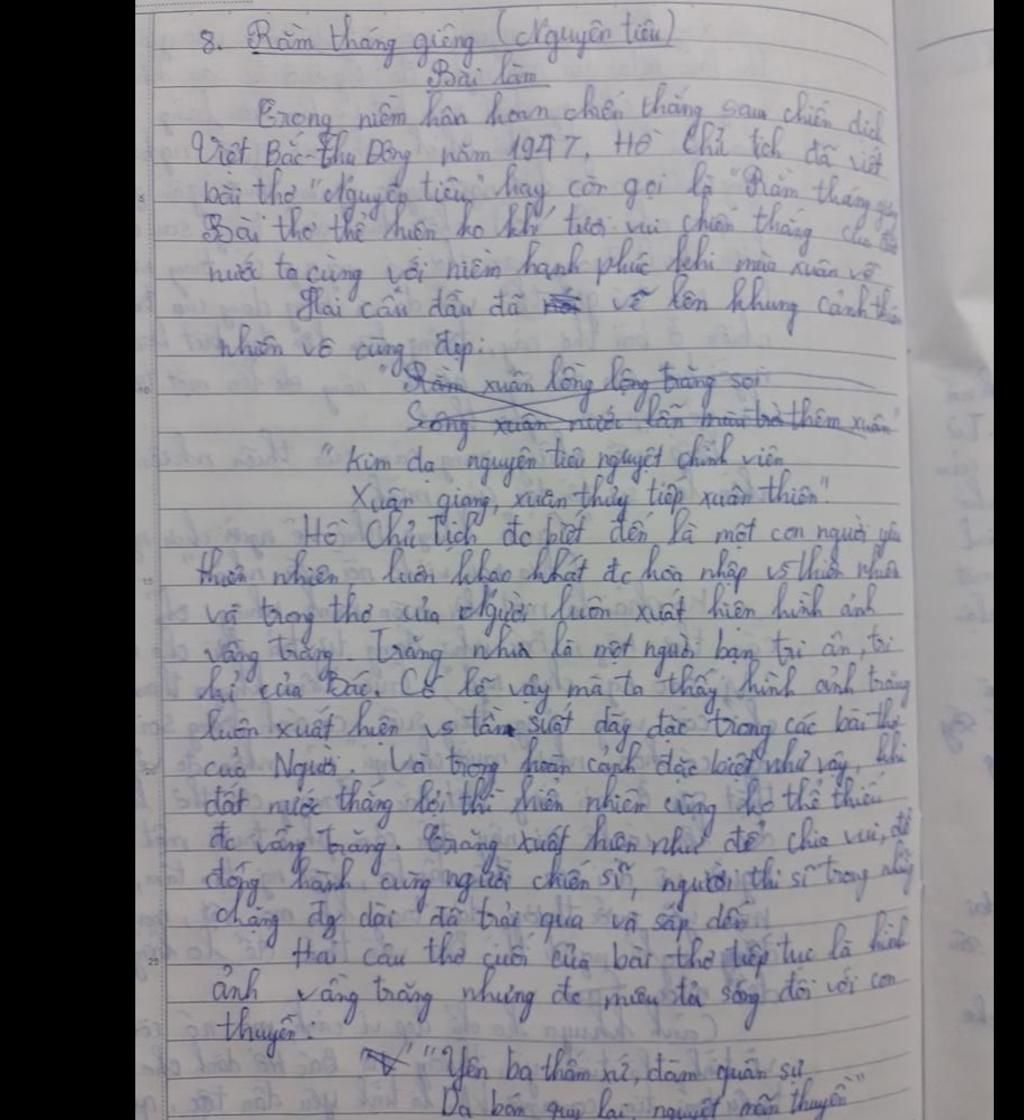 8. Rằm tháng giêng (Nguyên tiêu)
Bài làm
Trong niềm hân hoan chiến thắng sau chiến dịch
Việt Bắc-Thu Đông năm 1947, Hồ Chủ tịch đã viết
bài thơ "Nguyên tiêu" hay còn gọi là "Rằm tháng giêng
Bài thơ thể hiện ko khí tươi vui chiến thắng của
nước ta cùng với niềm hạnh phúc khi mùa xuân về
Hai câu đầu đã vẽ lên khung cảnh thiên
nhiên vô cùng đẹp:
"Rằm xuân lồng lộng trăng soi
Sông xuân nước lẫn màu trời thêm xuân"
"Kim dạ nguyên tiêu nguyệt chính viên
Xuân giang, xuân thủy tiếp xuân thiên"
Hồ Chủ Tịch đc biết đến là một con người yêu
thiên nhiên luôn khao khát đc hòa nhập vs thiên nhiên
và trong thơ của Người luôn xuất hiện hình ảnh
vầng trăng. Trăng như là một người bạn tri ân, tri
kỉ của Bác. Có lẽ vậy mà ta thấy hình ảnh trăng
luôn xuất hiện vs tần suất dày đặc trong các bài thơ
của Người. Và trong hoàn cảnh đặc biệt như vậy, khi
đất nước thắng lợi thì hiển nhiên cũng ko thể thiếu
đc vầng trăng. Trăng xuất hiện như để chia vui, để
đồng hành cùng người chiến sĩ, người thi sĩ trong những
chặng đg dài đã trải qua và sắp đến
Hai câu thơ cuối của bài thơ tiếp tục là hình
ảnh vầng trăng nhưng đc miêu tả sóng đôi với con
thuyền:
"Yên ba thâm xứ, đàm quân sự
Dạ bán quy lai, nguyệt mãn thuyền"